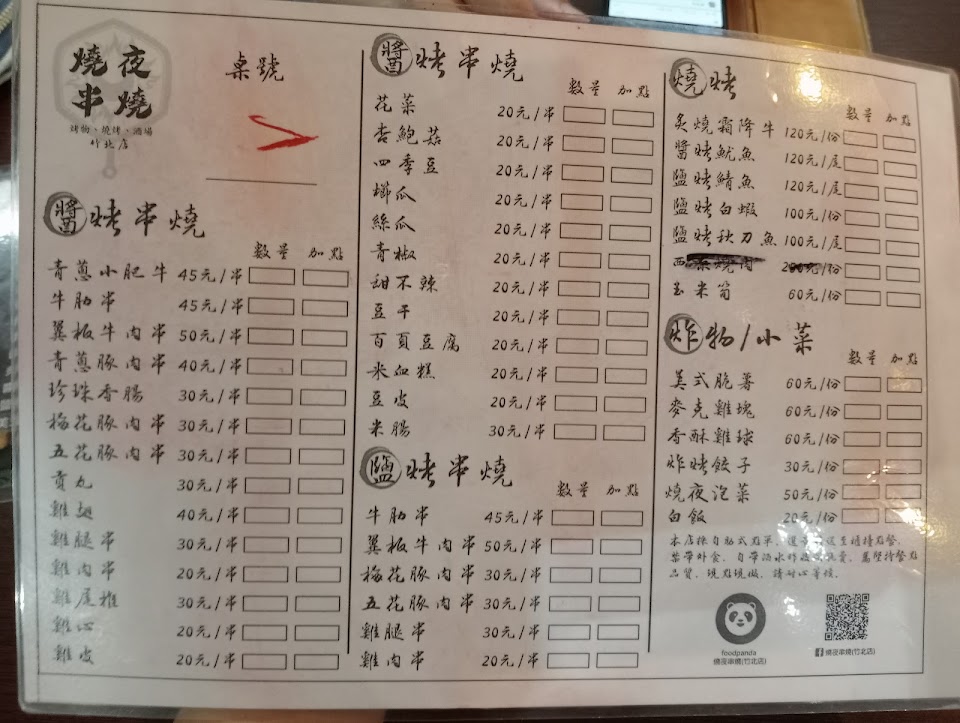 燒夜
串燒
烤物、燒烤、酒場
竹北店
桌號
醬烤串燒
數量 加點
青蔥小肥牛 45元/串
牛肋串 45元/串
翼板牛肉串 50元/串
青蔥豚肉串 40元/串
珍珠香腸 30元/串
梅花豚肉串 30元/串
五花豚肉串 30元/串
貢丸 30元/串
雞翅 40元/串
雞腿串 30元/串
雞肉串 20元/串
雞尾椎 30元/串
雞心 20元/串
雞皮 20元/串
醬烤串燒
數量 加點
花菜 20元/串
杏鮑菇 20元/串
四季豆 20元/串
櫛瓜 20元/串
絲瓜 20元/串
青椒 20元/串
甜不辣 20元/串
豆干 20元/串
百頁豆腐 20元/串
米血糕 20元/串
豆皮 20元/串
米腸 30元/串
鹽烤串燒
數量 加點
牛肋串 45元/串
翼板牛肉串 50元/串
梅花豚肉串 30元/串
五花豚肉串 30元/串
雞腿串 30元/串
雞肉串 20元/串
燒烤
數量 加點
炙燒霜降牛 120元/份
醬烤魷魚 120元/尾
鹽烤鯖魚 120元/尾
鹽烤白蝦 100元/份
鹽烤秋刀魚 100元/尾
燒肉 元/份
玉米筍 60元/份
炸物/小菜
數量 加點
美式脆薯 60元/份
麥克雞塊 60元/份
香酥雞球 60元/份
炸烤餃子 30元/份
燒夜泡菜 50元/份
白飯 20元/份
本店採自助式點單，至櫃檯點餐，
禁帶外食，自帶酒水，為堅持餐點
品質，現點現做，請耐心等候。
foodpanda
燒夜串燒(竹北店)
燒夜串燒(竹北店)